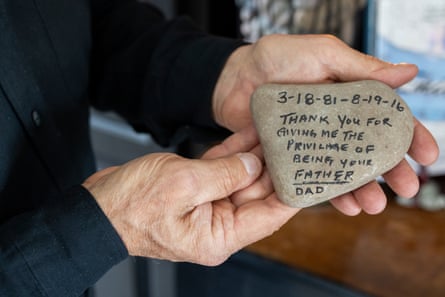 3-18-81-8-19-16
THANK YOU FOR
GIVING ME THE
PRIVILAGE OF
BEING YOUR
FATHER
DAD